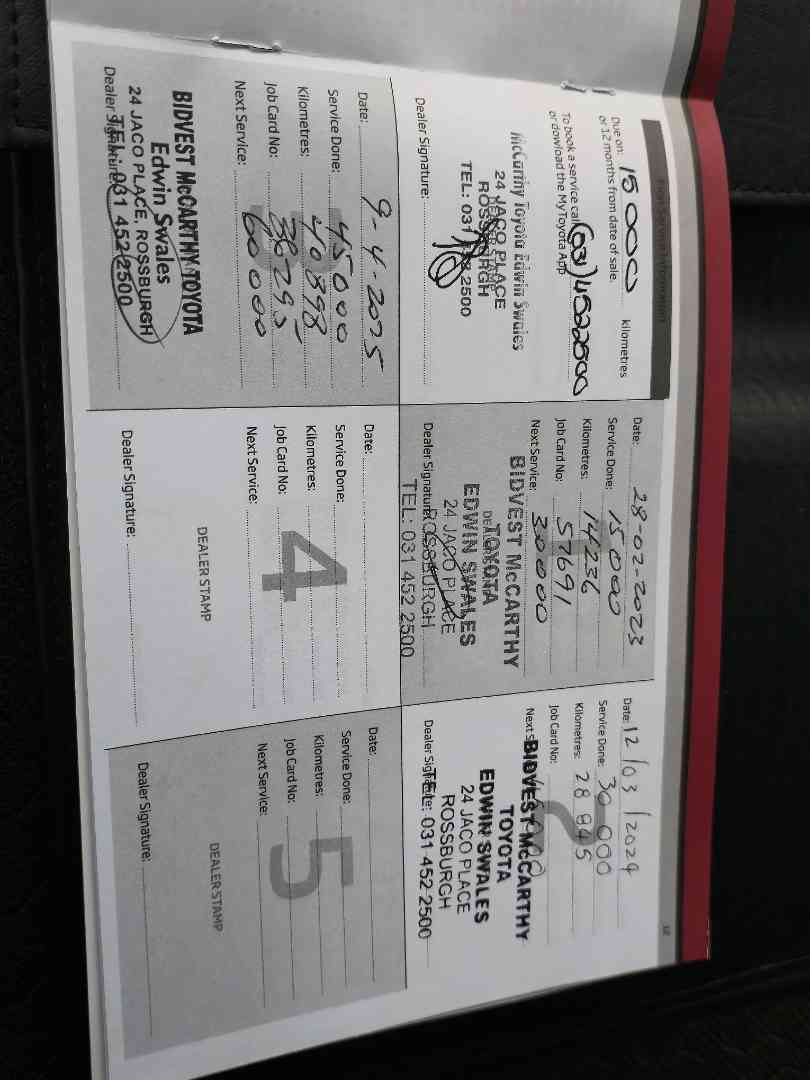 Due on: 15 000 kilometres
or 12 months from date of sale.
To book a service call (031) 4522500
or dowload the MyToyota App
McCarthy Toyota Edwin Swales
24 JACO PLACE
ROSSBURGH
TEL: 031 2500
Dealer Signature:
Date: 28-02-2023
Service Done: 15000
Kilometres: 14236
Job Card No: 57691
Next Service: 30000
BIDVEST McCARTHY
TOYOTA
EDWIN SWALES
24 JACO PLACE
ROSSBURGH
Dealer Signature:
TEL: 031 452 2500
Date: 12/03/2024
Service Done: 30 000
Kilometres: 28 845
Job Card No:
2
BIDVEST McCARTHY
TOYOTA
EDWIN SWALES
24 JACO PLACE
ROSSBURGH
Dealer Signature:
TEL: 031 452 2500
Date: 9-4-2025
Service Done: 45000
Kilometres: 40898
Job Card No: 36295
Next Service: 60000
BIDVEST McCARTHY TOYOTA
Edwin Swales
24 JACO PLACE, ROSSBURGH
Dealer Signature:
TEL: 031 452 2500
Date:
Service Done:
Kilometres:
Job Card No:
Next Service:
4
DEALER STAMP
Dealer Signature:
Date:
Service Done:
Kilometres:
Job Card No:
Next Service:
5
DEALER STAMP
Dealer Signature: